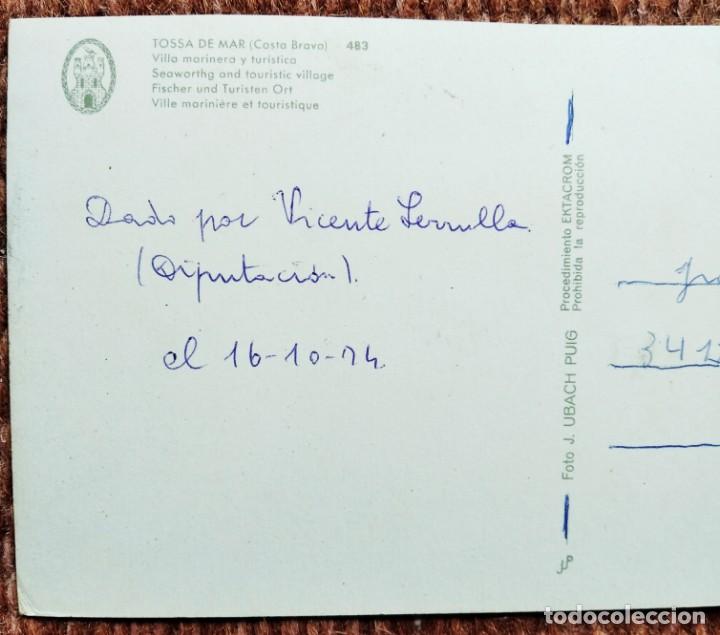 TOSSA DE MAR (Costa Brava) 483
Villa marinera y turistica
Seaworthg and touristic village
Fischer und Turisten Ort
Ville marinière et touristique
Dado por Vicente
(Diputación).
el 16-10-74.
Foto J. UBACH PUIG
Procedimiento EKTACROM
Prohibida la reproducción
341
todocoleccion